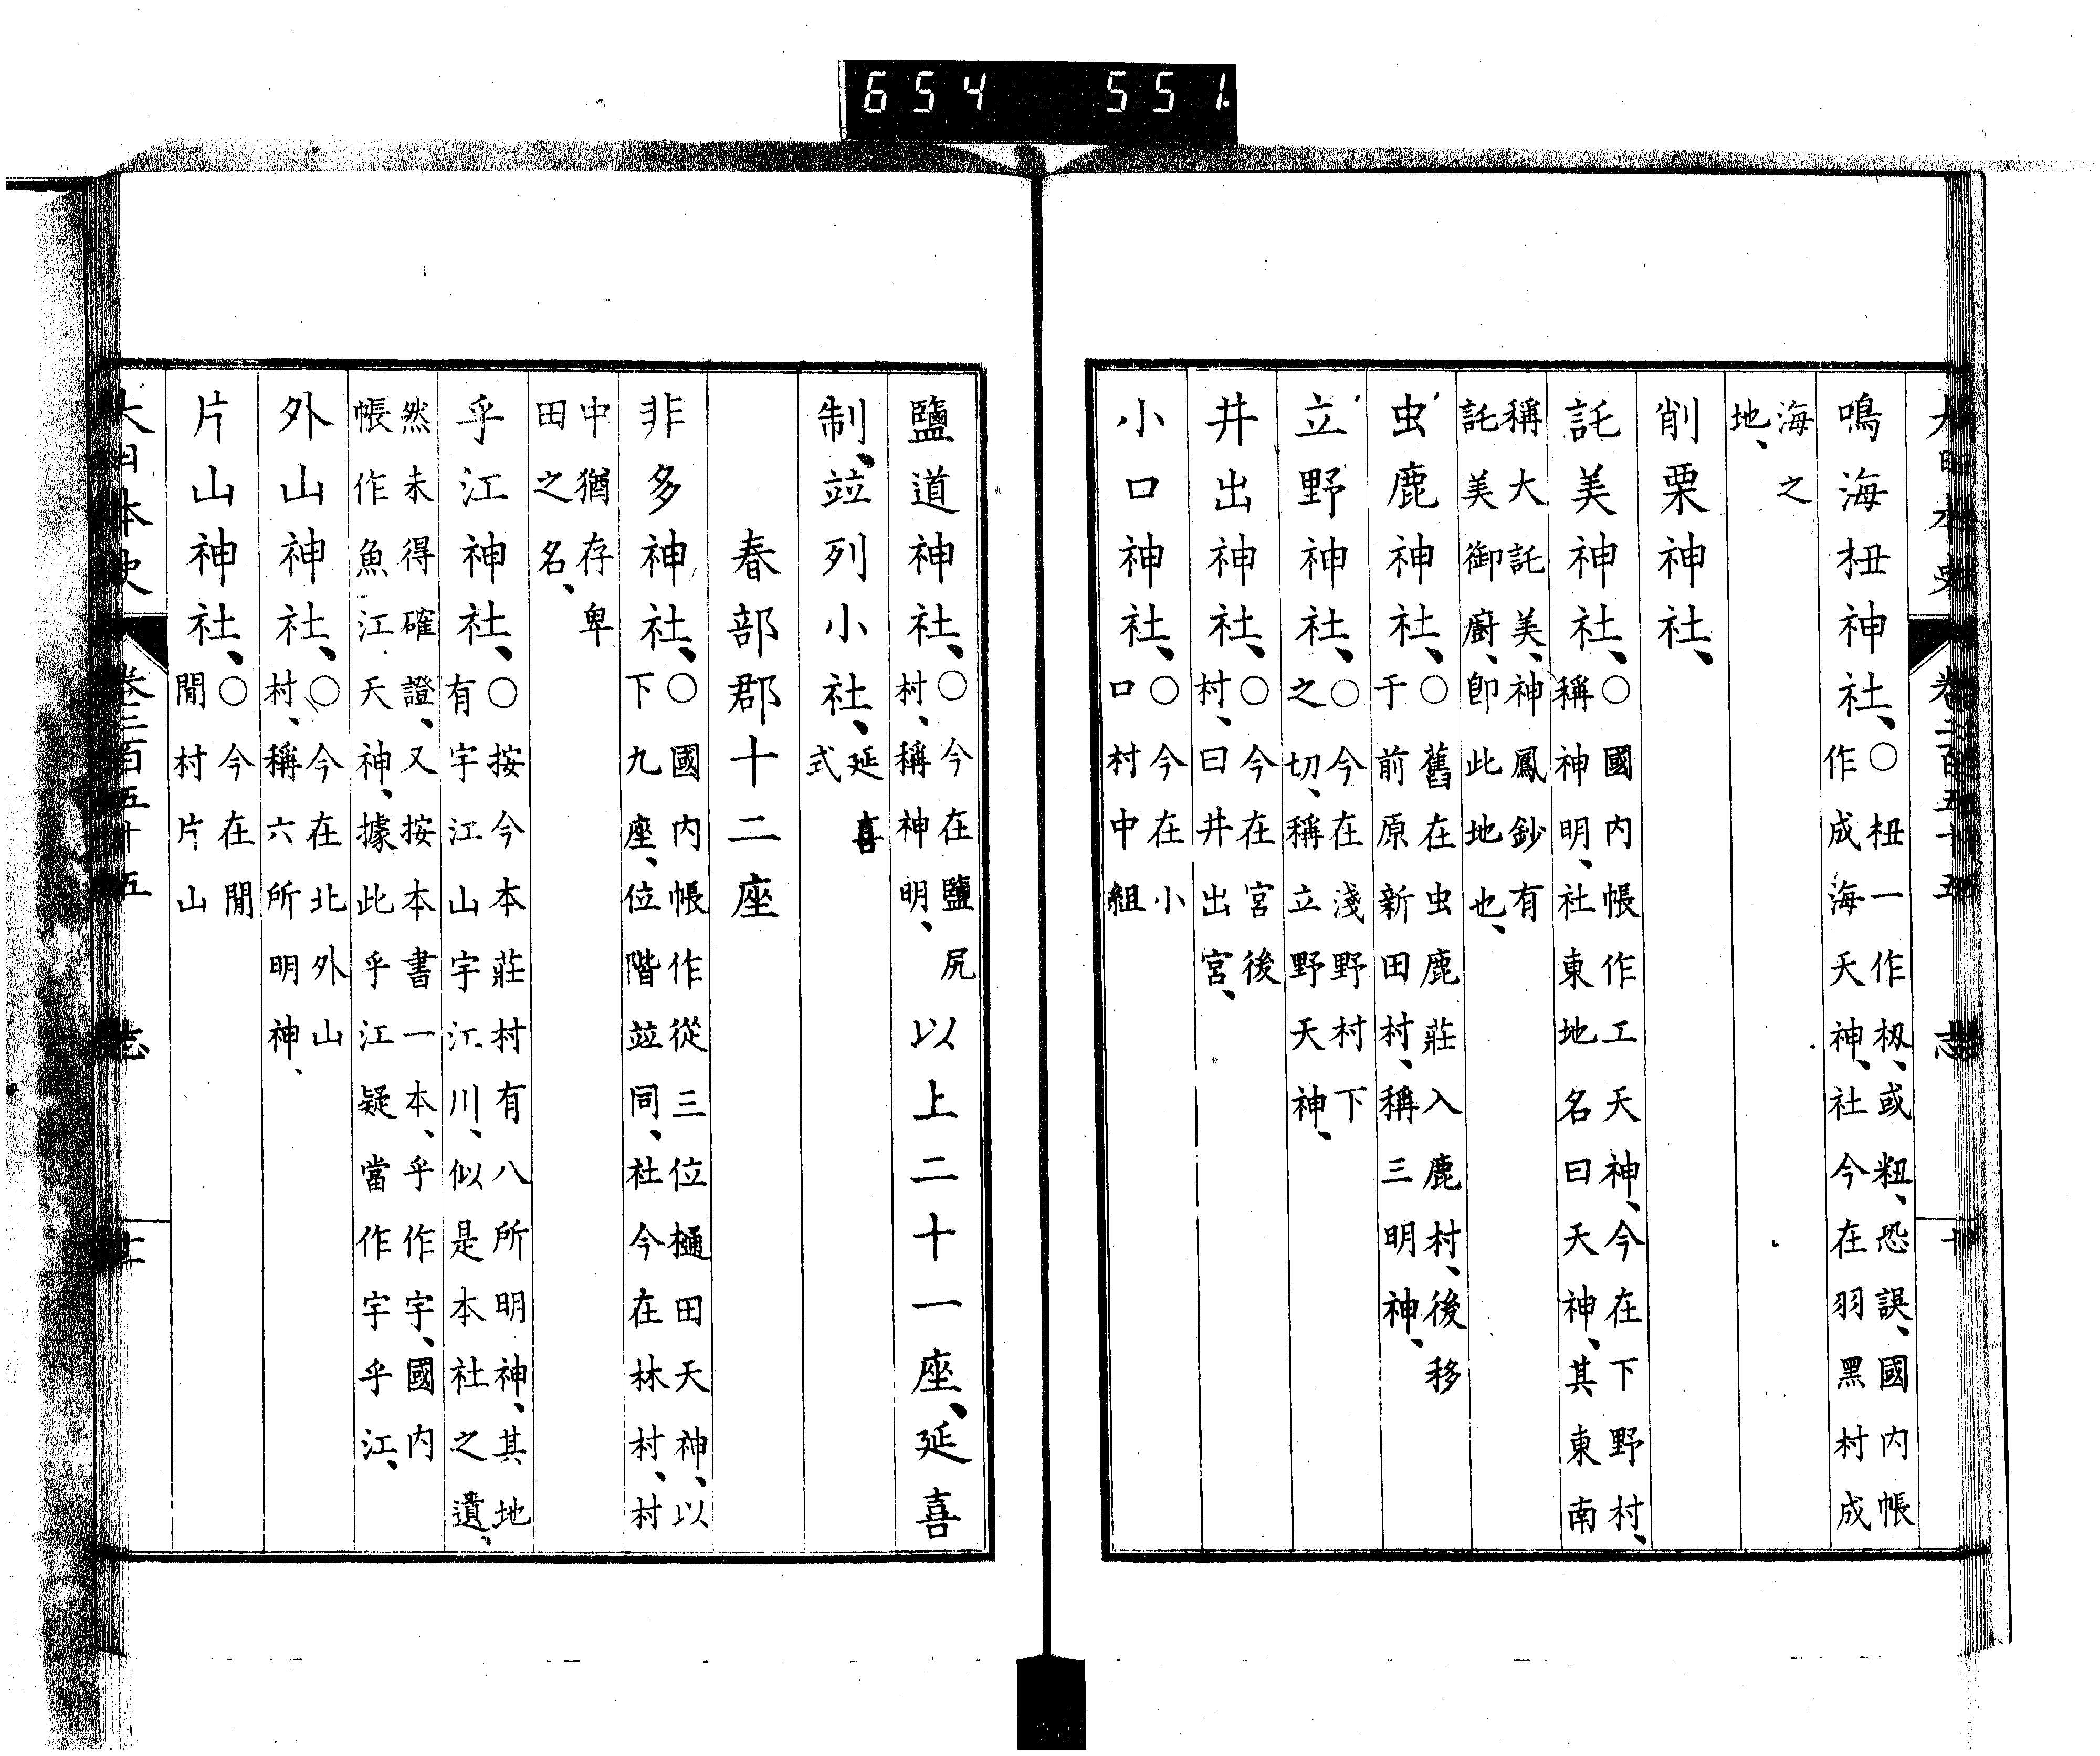 654 551.
大日本史 卷二百五十五 志 十
鳴海杻神社、○杻一作杒、或䊵、恐誤、國内帳
作成海天神、社今在羽黑村成
海之
地、
削栗神社、
託美神社、○國内帳作工天神、今在下野村、
稱神明、社東地名曰天神、其東南
稱大託美、神鳳鈔有
託美御廚、卽此地也、
虫鹿神社、○舊在虫鹿莊入鹿村、後移
于前原新田村、稱三明神、
立野神社、○今在淺野村下
之切、稱立野天神、
井出神社、○今在宮後
村、曰井出宮、
小口神社、○今在小
口村中組
鹽道神社、○今在鹽尻
村、稱神明、
以上二十一座、延喜
制、竝列小社、延喜
式
春部郡十二座
非多神社、○國内帳作從三位樋田天神、以
下九座、位階竝同、社今在林村、村
中猶存卑
田之名、
乎江神社、○按今本莊村有八所明神、其地
有宇江山宇江川、似是本社之遺、
然未得確證、又按本書一本、乎作宇、國内
帳作魚江天神、據此乎江疑當作宇乎江、
外山神社、○今在北外山
村、稱六所明神、
片山神社、○今在閒
閒村片山
大日本史 卷二百五十五 志 十一